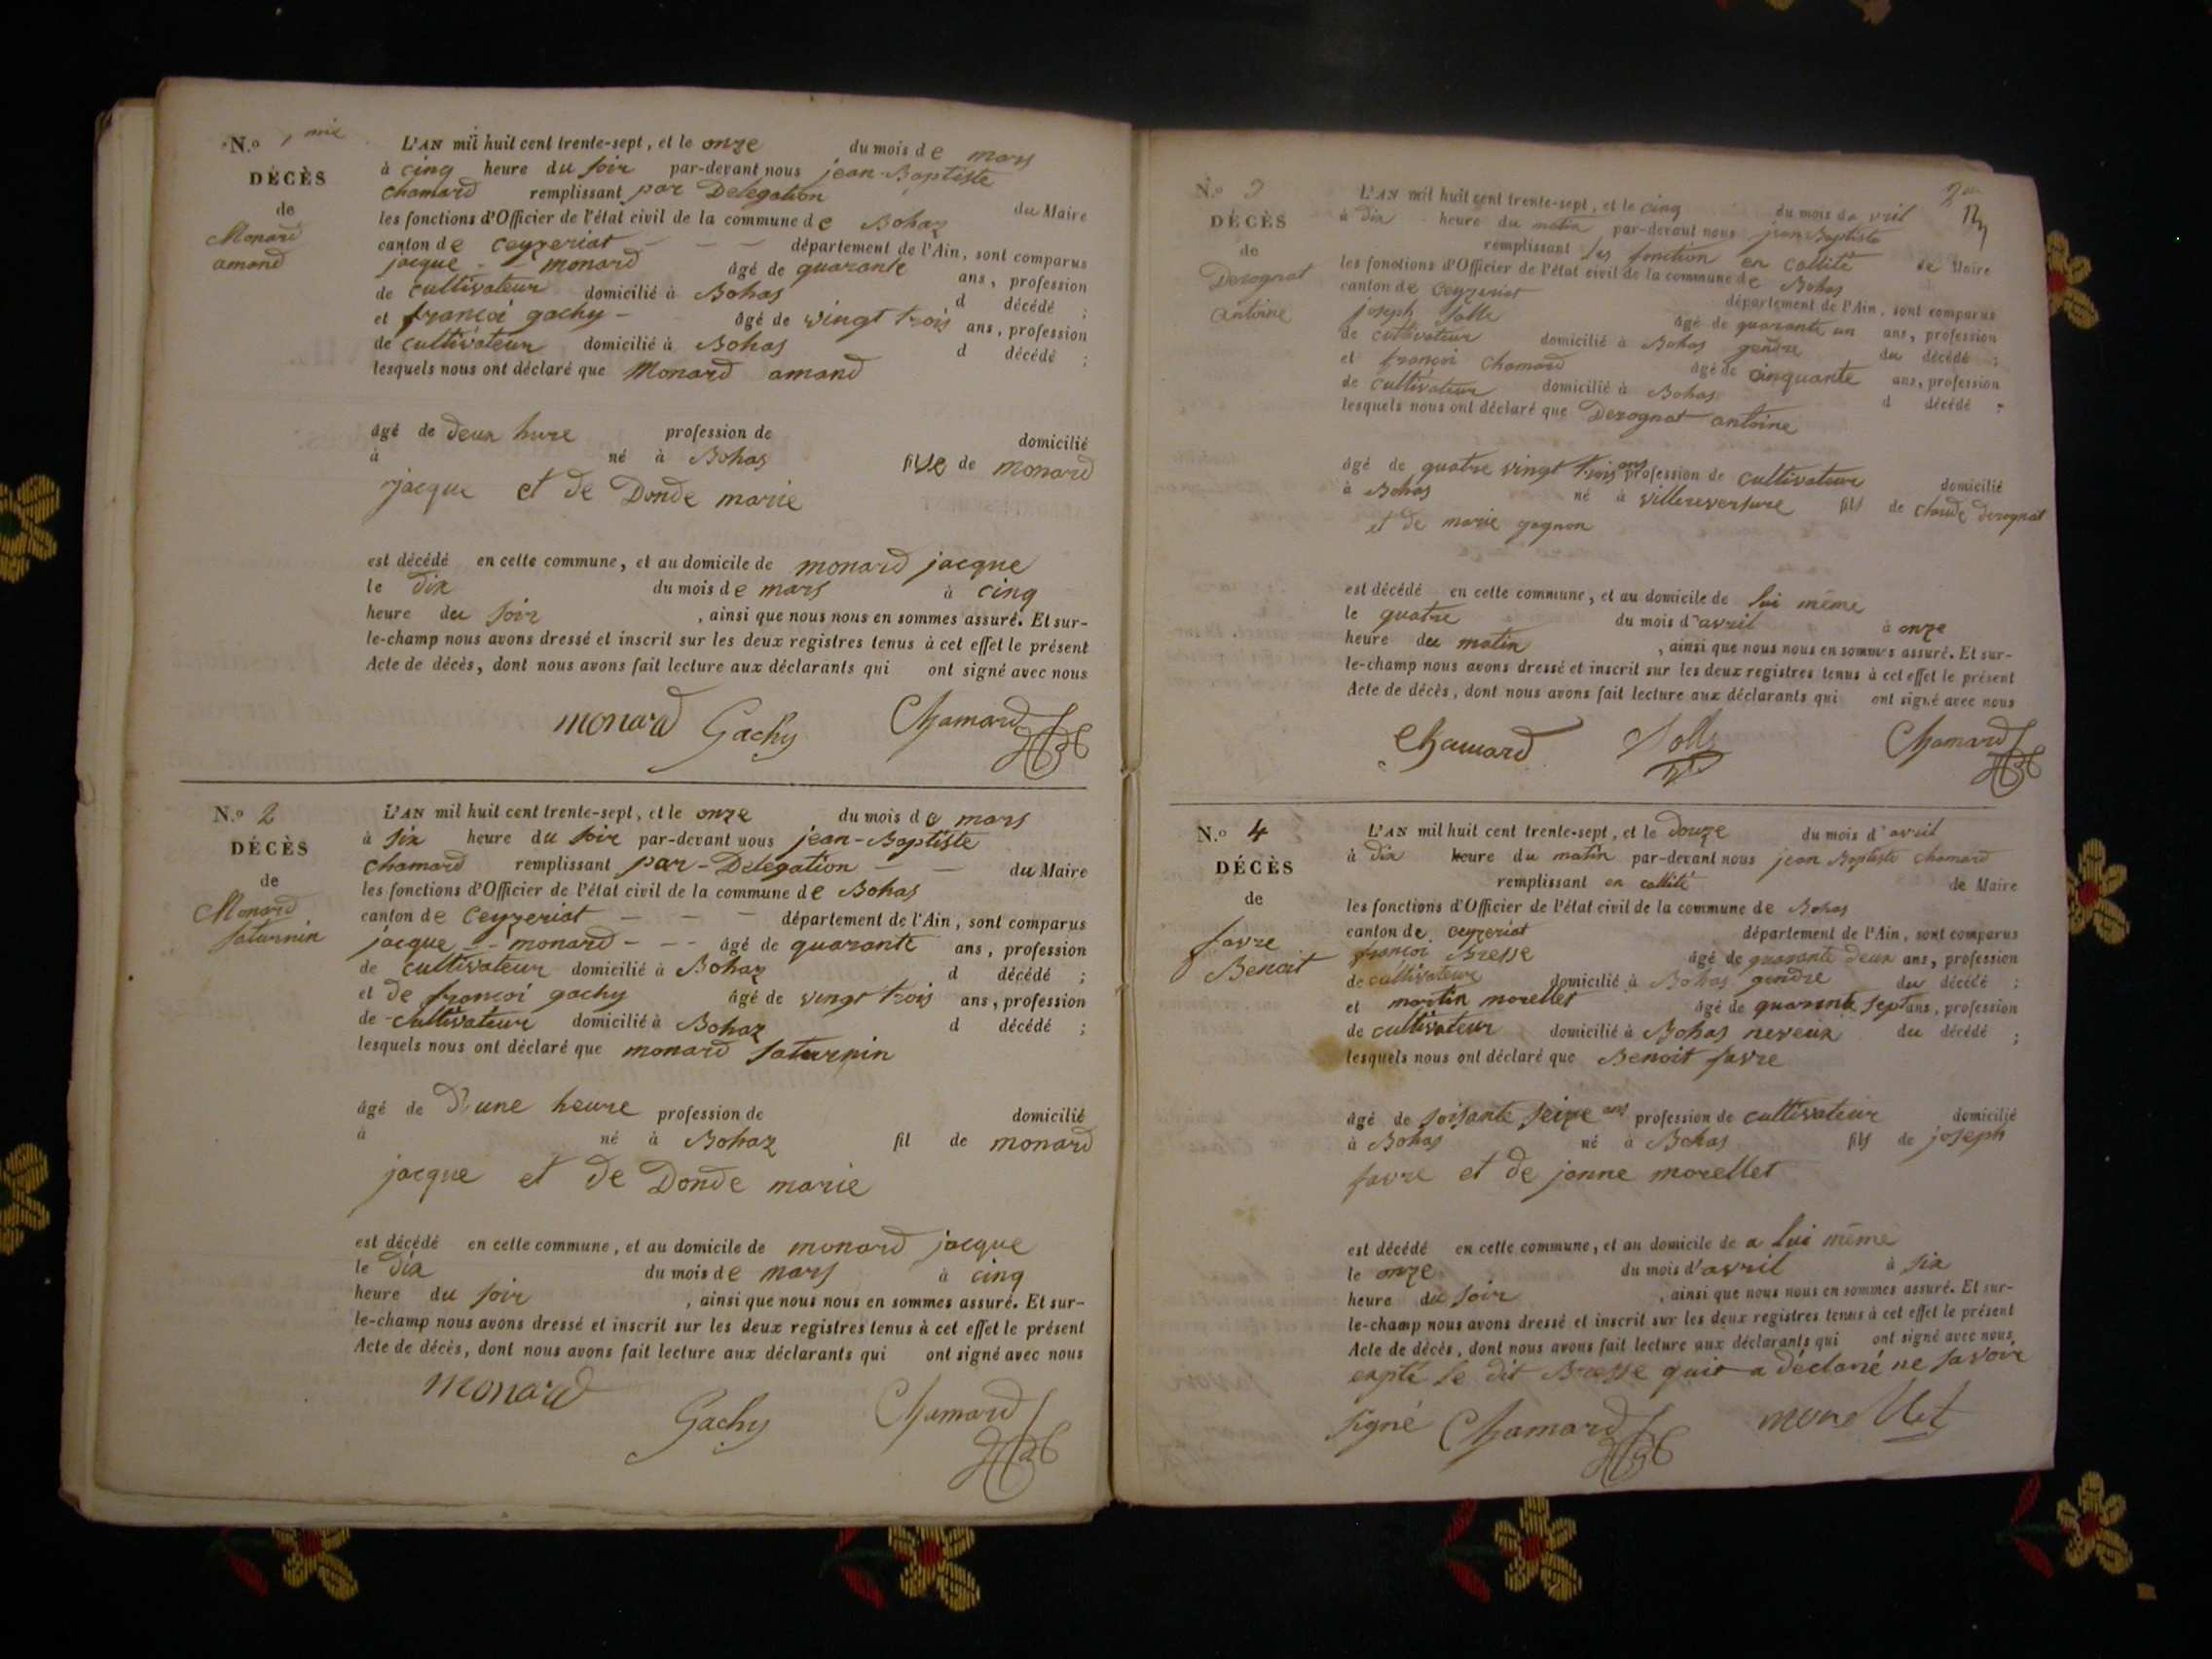 N.o 1 mie
DÉCÈS
de
Monard
amand
L'AN mil huit cent trente-sept, et le onze du mois de mars
à cinq heure du soir par-devant nous jean-Baptiste
chamard remplissant par Delegation du Maire
les fonctions d'Officier de l'état civil de la commune de Bohaz
canton de ceyzeriat - - - département de l'Ain, sont comparus
jacque - - monard âgé de quarante ans, profession
de cultivateur domicilié à Bohas d décédé ;
et françoi gachy - âgé de vingt trois ans, profession
de cultivateur domicilié à Bohas d décédé ;
lesquels nous ont déclaré que Monard amand
âgé de deux hure profession de domicilié
à né à Bohas de monard
jacque et de Donde marie
est décédé en cette commune, et au domicile de monard jacque
le dix du mois de mars à cinq
heure du soir , ainsi que nous nous en sommes assuré. Et sur-
le-champ nous avons dressé et inscrit sur les deux registres tenus à cet effet le présent
Acte de décès, dont nous avons fait lecture aux déclarants qui ont signé avec nous
monard Gachy Chamard
N.o 2
DÉCÈS
de
Monard
saturnin
L'AN mil huit cent trente-sept, et le onze du mois de mars
à six heure du soir par-devant nous jean-Baptiste
chamard remplissant par-Delegation - - du Maire
les fonctions d'Officier de l'état civil de la commune de Bohas
canton de Ceyzeriat - - - département de l'Ain, sont comparus
jacque - - monard - - - âgé de quarante ans, profession
de cultivateur domicilié à Bohaz d décédé ;
et de françoi gachy âgé de vingt trois ans, profession
de cultivateur domicilié à Bohaz d décédé ;
lesquels nous ont déclaré que monard saturnin
âgé de D'une heure profession de domicilié
à né à Bohaz fil de monard
jacque et de Donde marie
est décédé en cette commune, et au domicile de monard jacque
le dix du mois de mars à cinq
heure du soir , ainsi que nous nous en sommes assuré. Et sur-
le-champ nous avons dressé et inscrit sur les deux registres tenus à cet effet le présent
Acte de décès, dont nous avons fait lecture aux déclarants qui ont signé avec nous
monard Gachy Chamard
N.o 3
DÉCÈS
de
Derognat
antoine
L'AN mil huit cent trente-sept, et le cinq du mois de vril
à dix heure du matin par-devant nous jean Baptiste
remplissant les fonction en callité de Maire
les fonctions d'Officier de l'état civil de la commune de Bohas
canton de ceyzeriat département de l'Ain, sont comparus
joseph âgé de quarante un ans, profession
de cultivateur domicilié à Bohas gendre du décédé ;
et françoi chamard âgé de cinquante ans, profession
de cultivateur domicilié à Bohas d décédé ;
lesquels nous ont déclaré que Derognat antoine
âgé de quatre vingt trois ans profession de cultivateur domicilié
à Bohas né à villereversure fils de claude derognat
et de marie gagnon
est décédé en cette commune, et au domicile de lui même
le quatre du mois d'avril à onze
heure du matin , ainsi que nous nous en sommes assuré. Et sur-
le-champ nous avons dressé et inscrit sur les deux registres tenus à cet effet le présent
Acte de décès, dont nous avons fait lecture aux déclarants qui ont signé avec nous
Chamard Chamard
N.o 4
DÉCÈS
de
favre
Benoit
L'AN mil huit cent trente-sept, et le douze du mois d'avril
à dix heure du matin par-devant nous jean Baptiste chamard
remplissant en callité de Maire
les fonctions d'Officier de l'état civil de la commune de Bohas
canton de ceyzeriat département de l'Ain, sont comparus
françoi Bresse âgé de quarante deux ans, profession
de cultivateur domicilié à Bohas gendre du décédé ;
et martin morellet âgé de quarante sept ans, profession
de cultivateur domicilié à Bohas neveux du décédé ;
lesquels nous ont déclaré que Benoit favre
âgé de soisante seize ans profession de cultivateur domicilié
à Bohas né à Bohas fils de joseph
favre et de janne morellet
est décédé en cette commune, et au domicile de a lui même
le onze du mois d'avril à six
heure du soir , ainsi que nous nous en sommes assuré. Et sur-
le-champ nous avons dressé et inscrit sur les deux registres tenus à cet effet le présent
Acte de décès, dont nous avons fait lecture aux déclarants qui ont signé avec nous
le dit Bresse a déclaré ne savoir
signé Chamard morellet